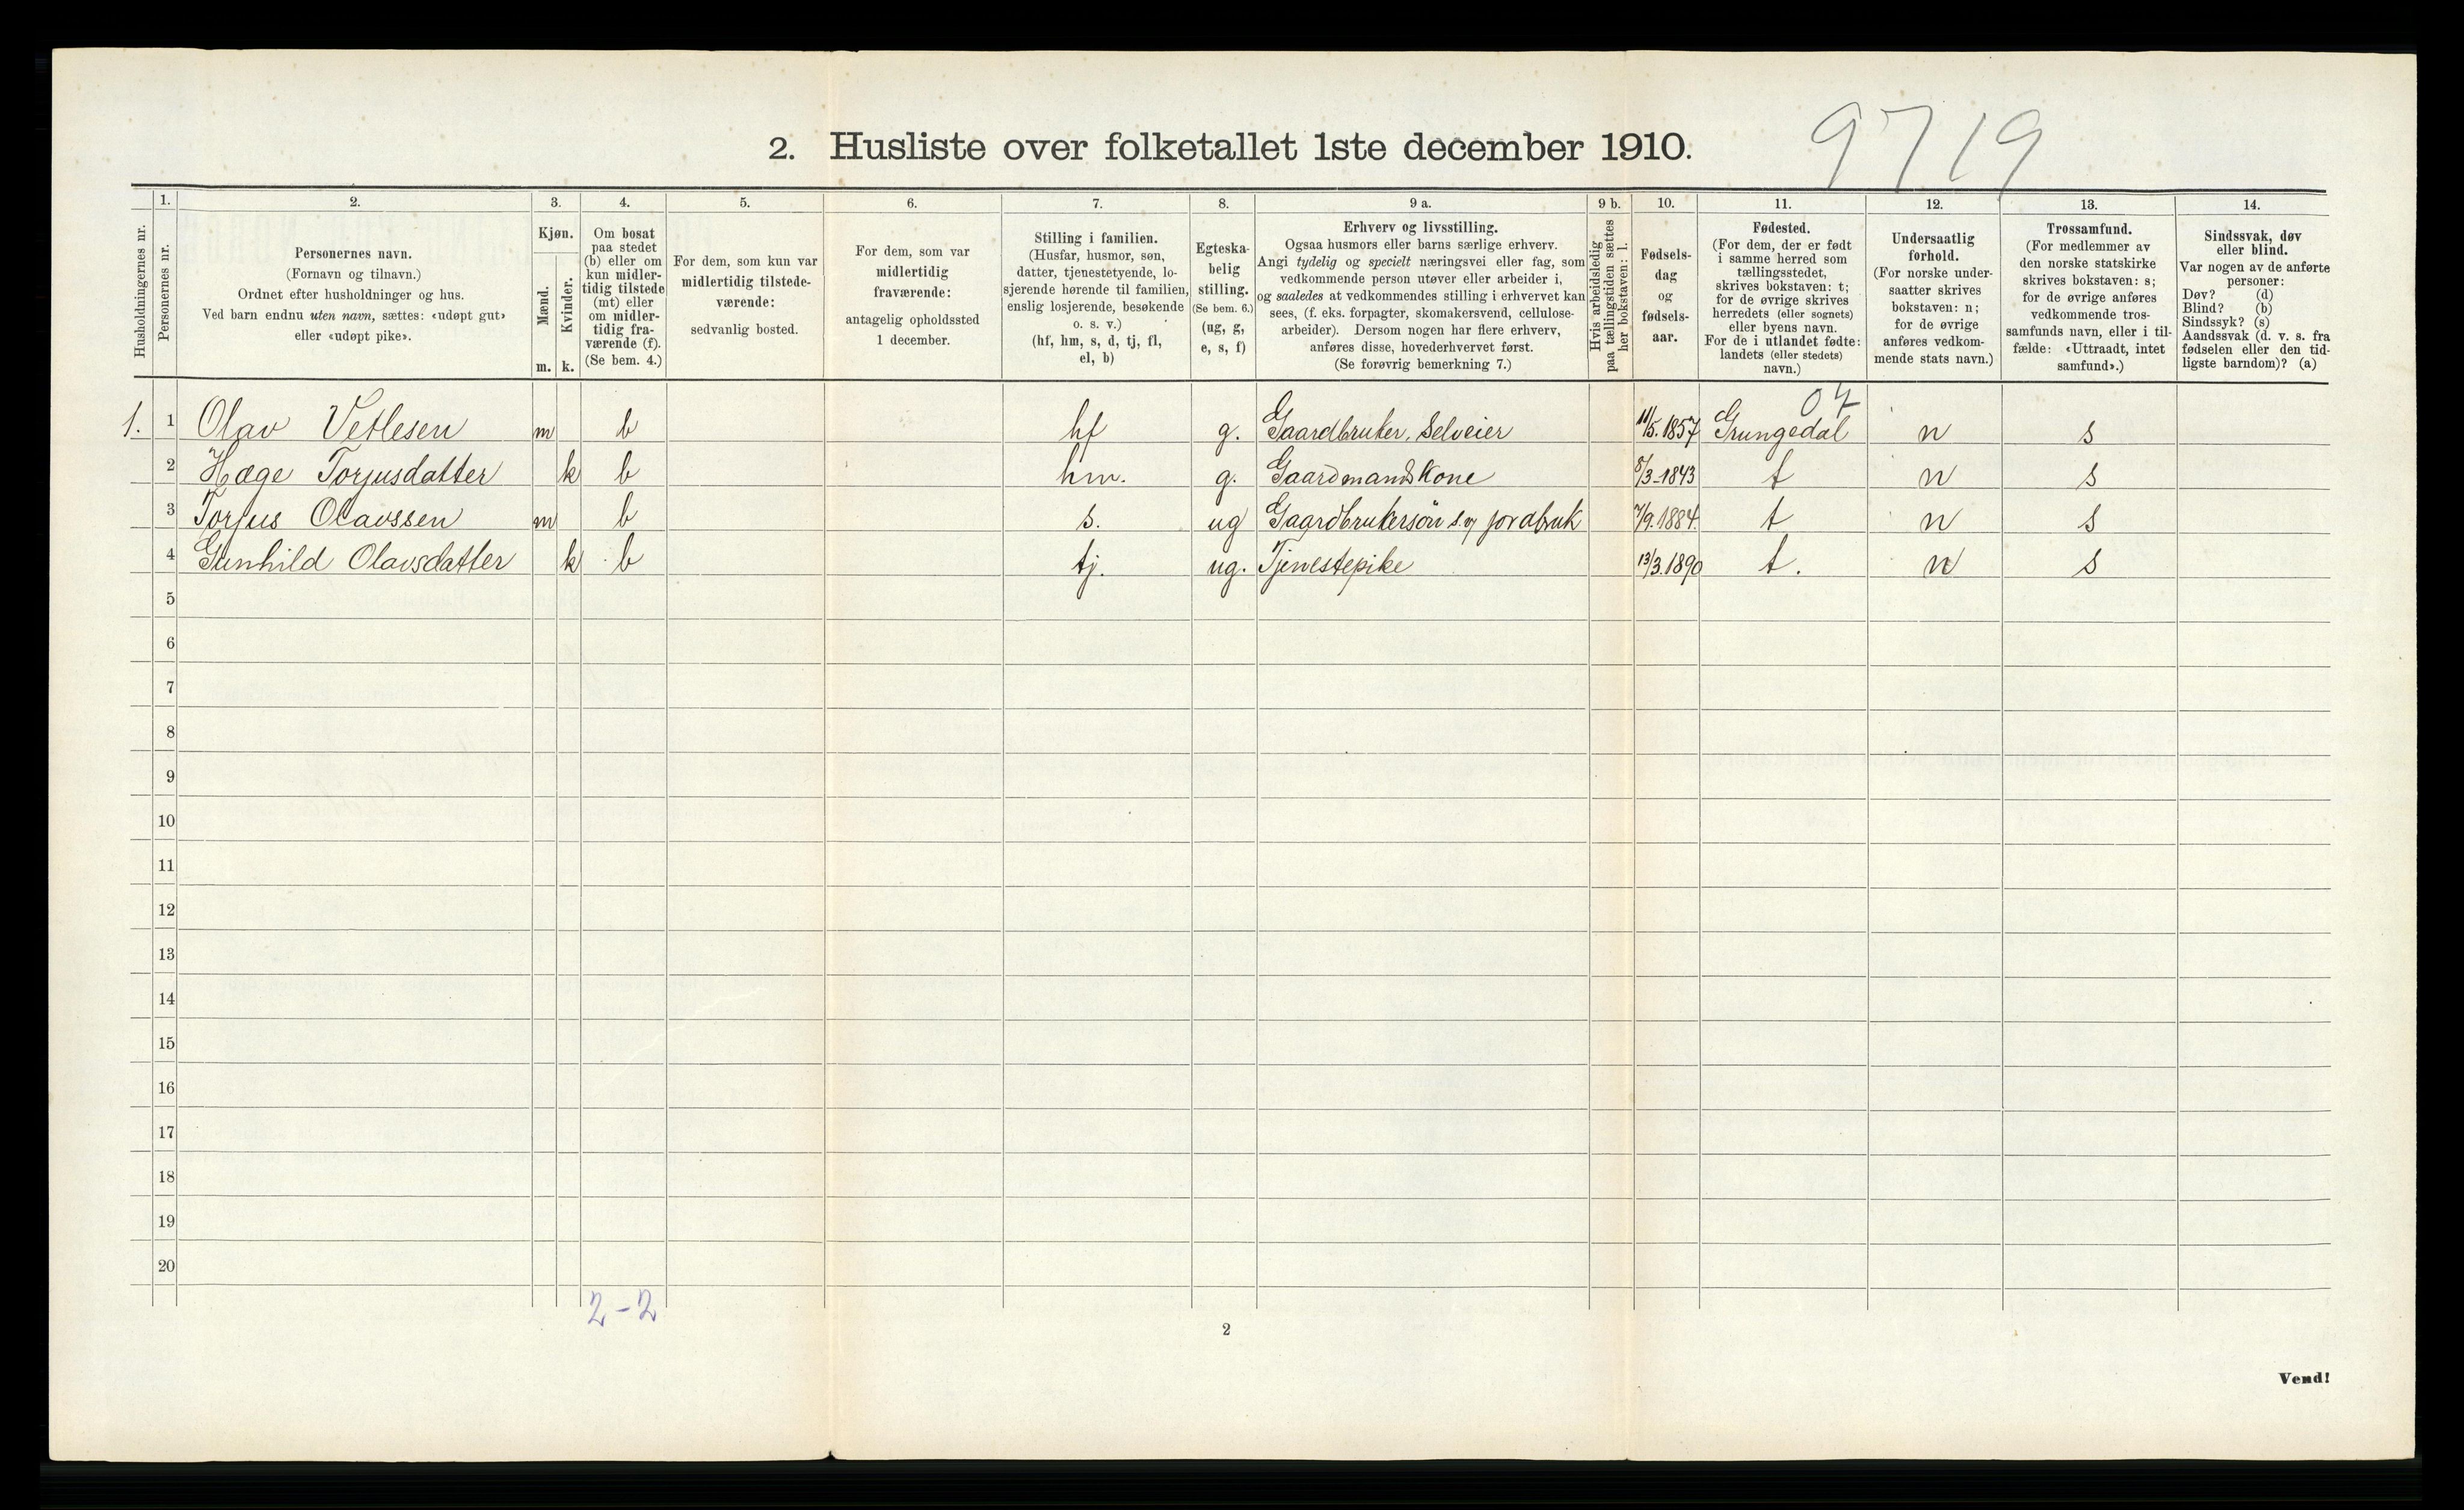 9719
2. Husliste over folketallet 1ste december 1910.
Husholdningernes nr.
1.
Personernes nr.
2.
Personernes navn.
(Fornavn og tilnavn.)
Ordnet efter husholdninger og hus.
Ved barn endnu uten navn, sættes: «udøpt gut»
eller «udøpt pike».
3.
Kjøn.
Mænd.
Kvinder.
m. k.
4.
Om bosat
paa stedet
(b) eller om
kun midler-
tidig tilstede
(mt) eller
om midler-
tidig fra-
værende (f).
(Se bem. 4.)
5.
For dem, som kun var
midlertidig tilstede-
værende:
sedvanlig bosted.
6.
For dem, som var
midlertidig
fraværende:
antagelig opholdssted
1 december.
7.
Stilling i familien.
(Husfar, husmor, søn,
datter, tjenestetyende, lo-
sjerende hørende til familien,
enslig losjerende, besøkende
o. s. v.)
(hf, hm, s, d, tj, fl,
el, b)
8.
Egteska-
belig
stilling.
(Se bem. 6.)
(ug, g,
e, s, f)
9 a.
Erhverv og livsstilling.
Ogsaa husmors eller barns særlige erhverv.
Angi tydelig og specielt næringsvei eller fag, som
vedkommende person utøver eller arbeider i,
og saaledes at vedkommendes stilling i erhvervet kan
sees, (f. eks. forpagter, skomakersvend, cellulose-
arbeider). Dersom nogen har flere erhverv,
anføres disse, hovederhvervet først.
(Se forøvrig bemerkning 7.)
9 b.
Hvis arbeidsledig
paa tællingstiden sættes
her bokstaven: l.
10.
Fødsels-
dag
og
fødsels-
aar.
11.
Fødested.
(For dem, der er født
i samme herred som
tællingsstedet,
skrives bokstaven: t;
for de øvrige skrives
herredets (eller sognets)
eller byens navn.
For de i utlandet fødte:
landets (eller stedets)
navn.)
12.
Undersaatlig
forhold.
(For norske under-
saatter skrives
bokstaven: n;
for de øvrige
anføres vedkom-
mende stats navn.)
13.
Trossamfund.
(For medlemmer av
den norske statskirke
skrives bokstaven: s;
for de øvrige anføres
vedkommende tros-
samfunds navn, eller i til-
fælde: «Uttraadt, intet
samfund».)
14.
Sindssvak, døv
eller blind.
Var nogen av de anførte
personer:
Døv? (d)
Blind? (b)
Sindssyk? (s)
Aandssvak (d. v. s. fra
fødselen eller den tid-
ligste barndom)? (a)
07
1. 1 Olav Vetlesen m b hf g. Gaardbruker, Selveier 11/5.1857 Grungedal n s
2 Hæge Torjusdatter k b hm. g. Gaardmandskone 8/3-1843 t n s
3 Torjus Olavssen m b s. ug Gaardbrukersön s.v. jordbruk 7/9.1884. t n s
4 Gunhild Olavsdatter k b tj. ug. Tjenestepike 13/3.1890 t. n s
5
6
7
8
9
10
11
12
13
14
15
16
17
18
19
20
2-2
2
Vend!